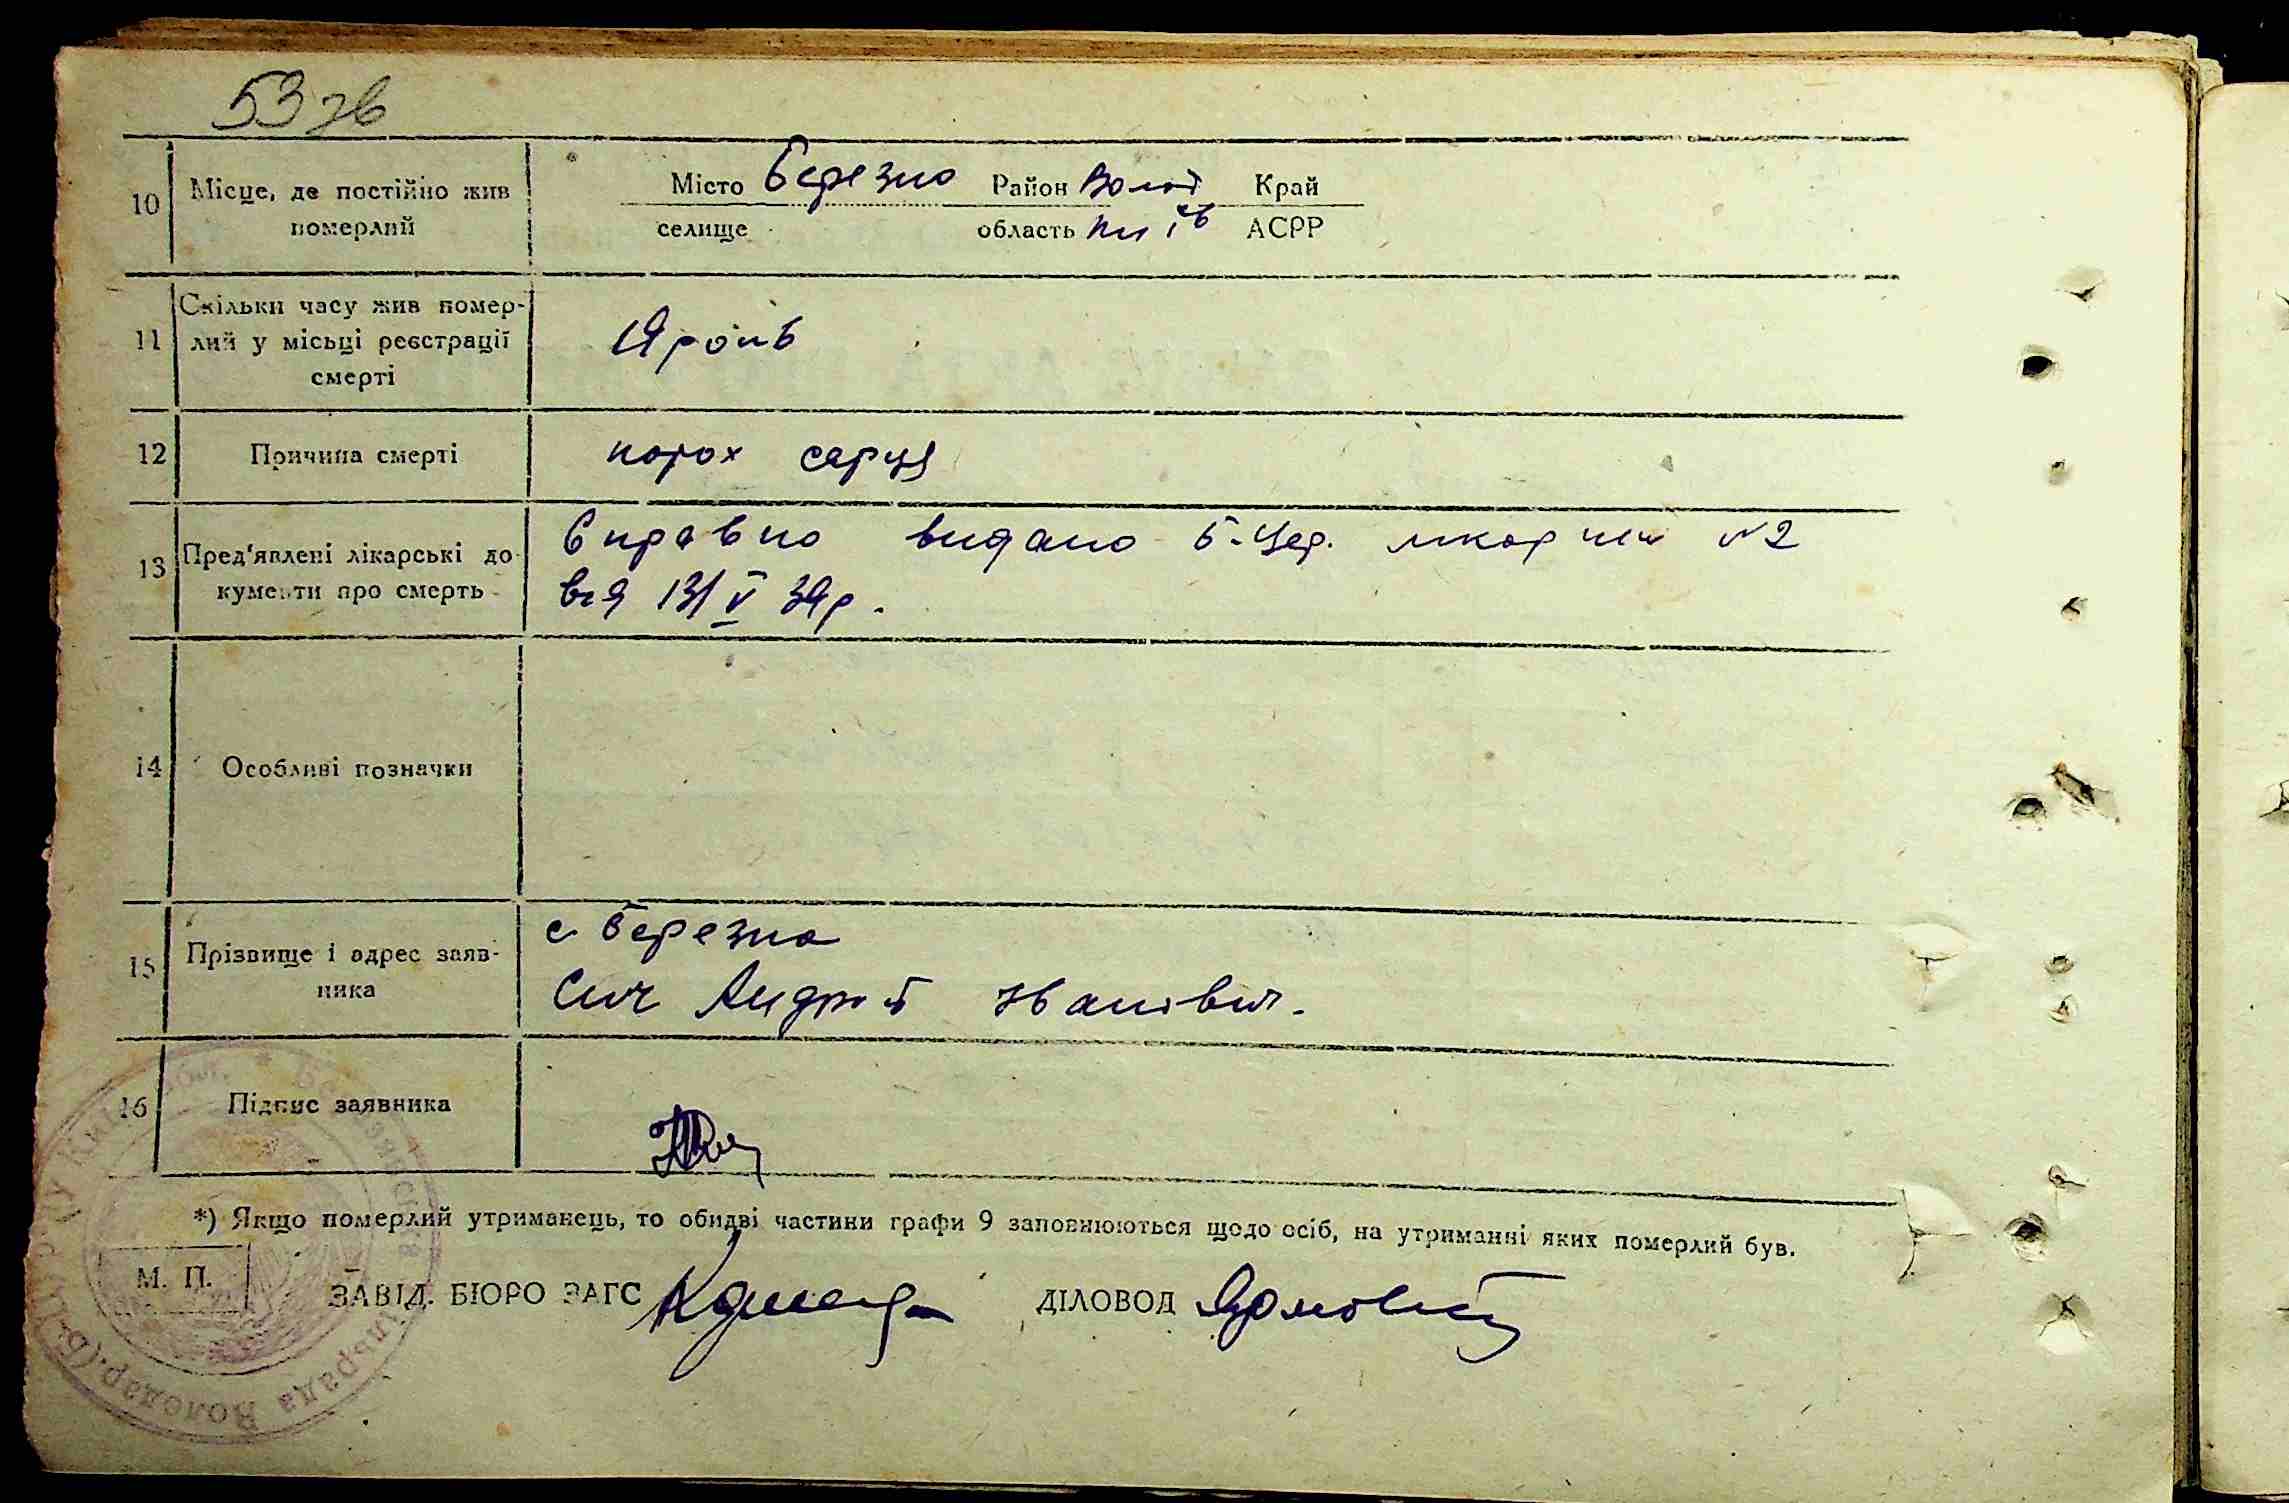 53 зв
10 Місце, де постійно жив померлий
Місто Березно Район Волод Край
селище область Київ АСРР
11 Скільки часу жив помер-
лий у місьці реєстрації
смерті
років
12 Причина смерті порох серця
13 Пред'явлені лікарські до-
кументи про смерть
Справно видано Б-Цер. №2
від 13/V 39р.
14 Особливі позначки
15 Прізвище і адрес заяв-
ника
с Березна
Сич Андрій Іванович.
16 Підпис заявника
*) Якщо померлий утриманець, то обидві частини графи 9 заповнюються щодо осіб, на утриманні яких померлий був.
М. П.
ЗАВІД. БЮРО ЗАГС ДІЛОВОД